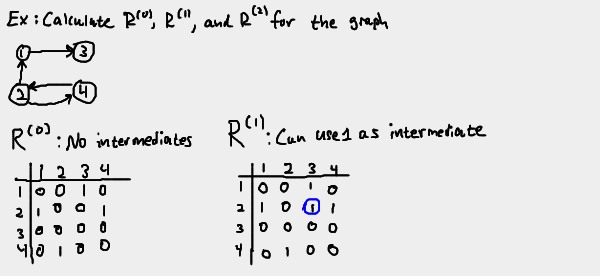 Ex: Calculate R^(0), R^(1), and R^(2) for the graph
1 3
2 4
R^(0): No intermediates
1 2 3 4
1 0 0 1 0
2 1 0 0 1
3 0 0 0 0
4 0 1 0 0
R^(1): Can use 1 as intermediate
1 2 3 4
1 0 0 1 0
2 1 0 1 1
3 0 0 0 0
4 0 1 0 0